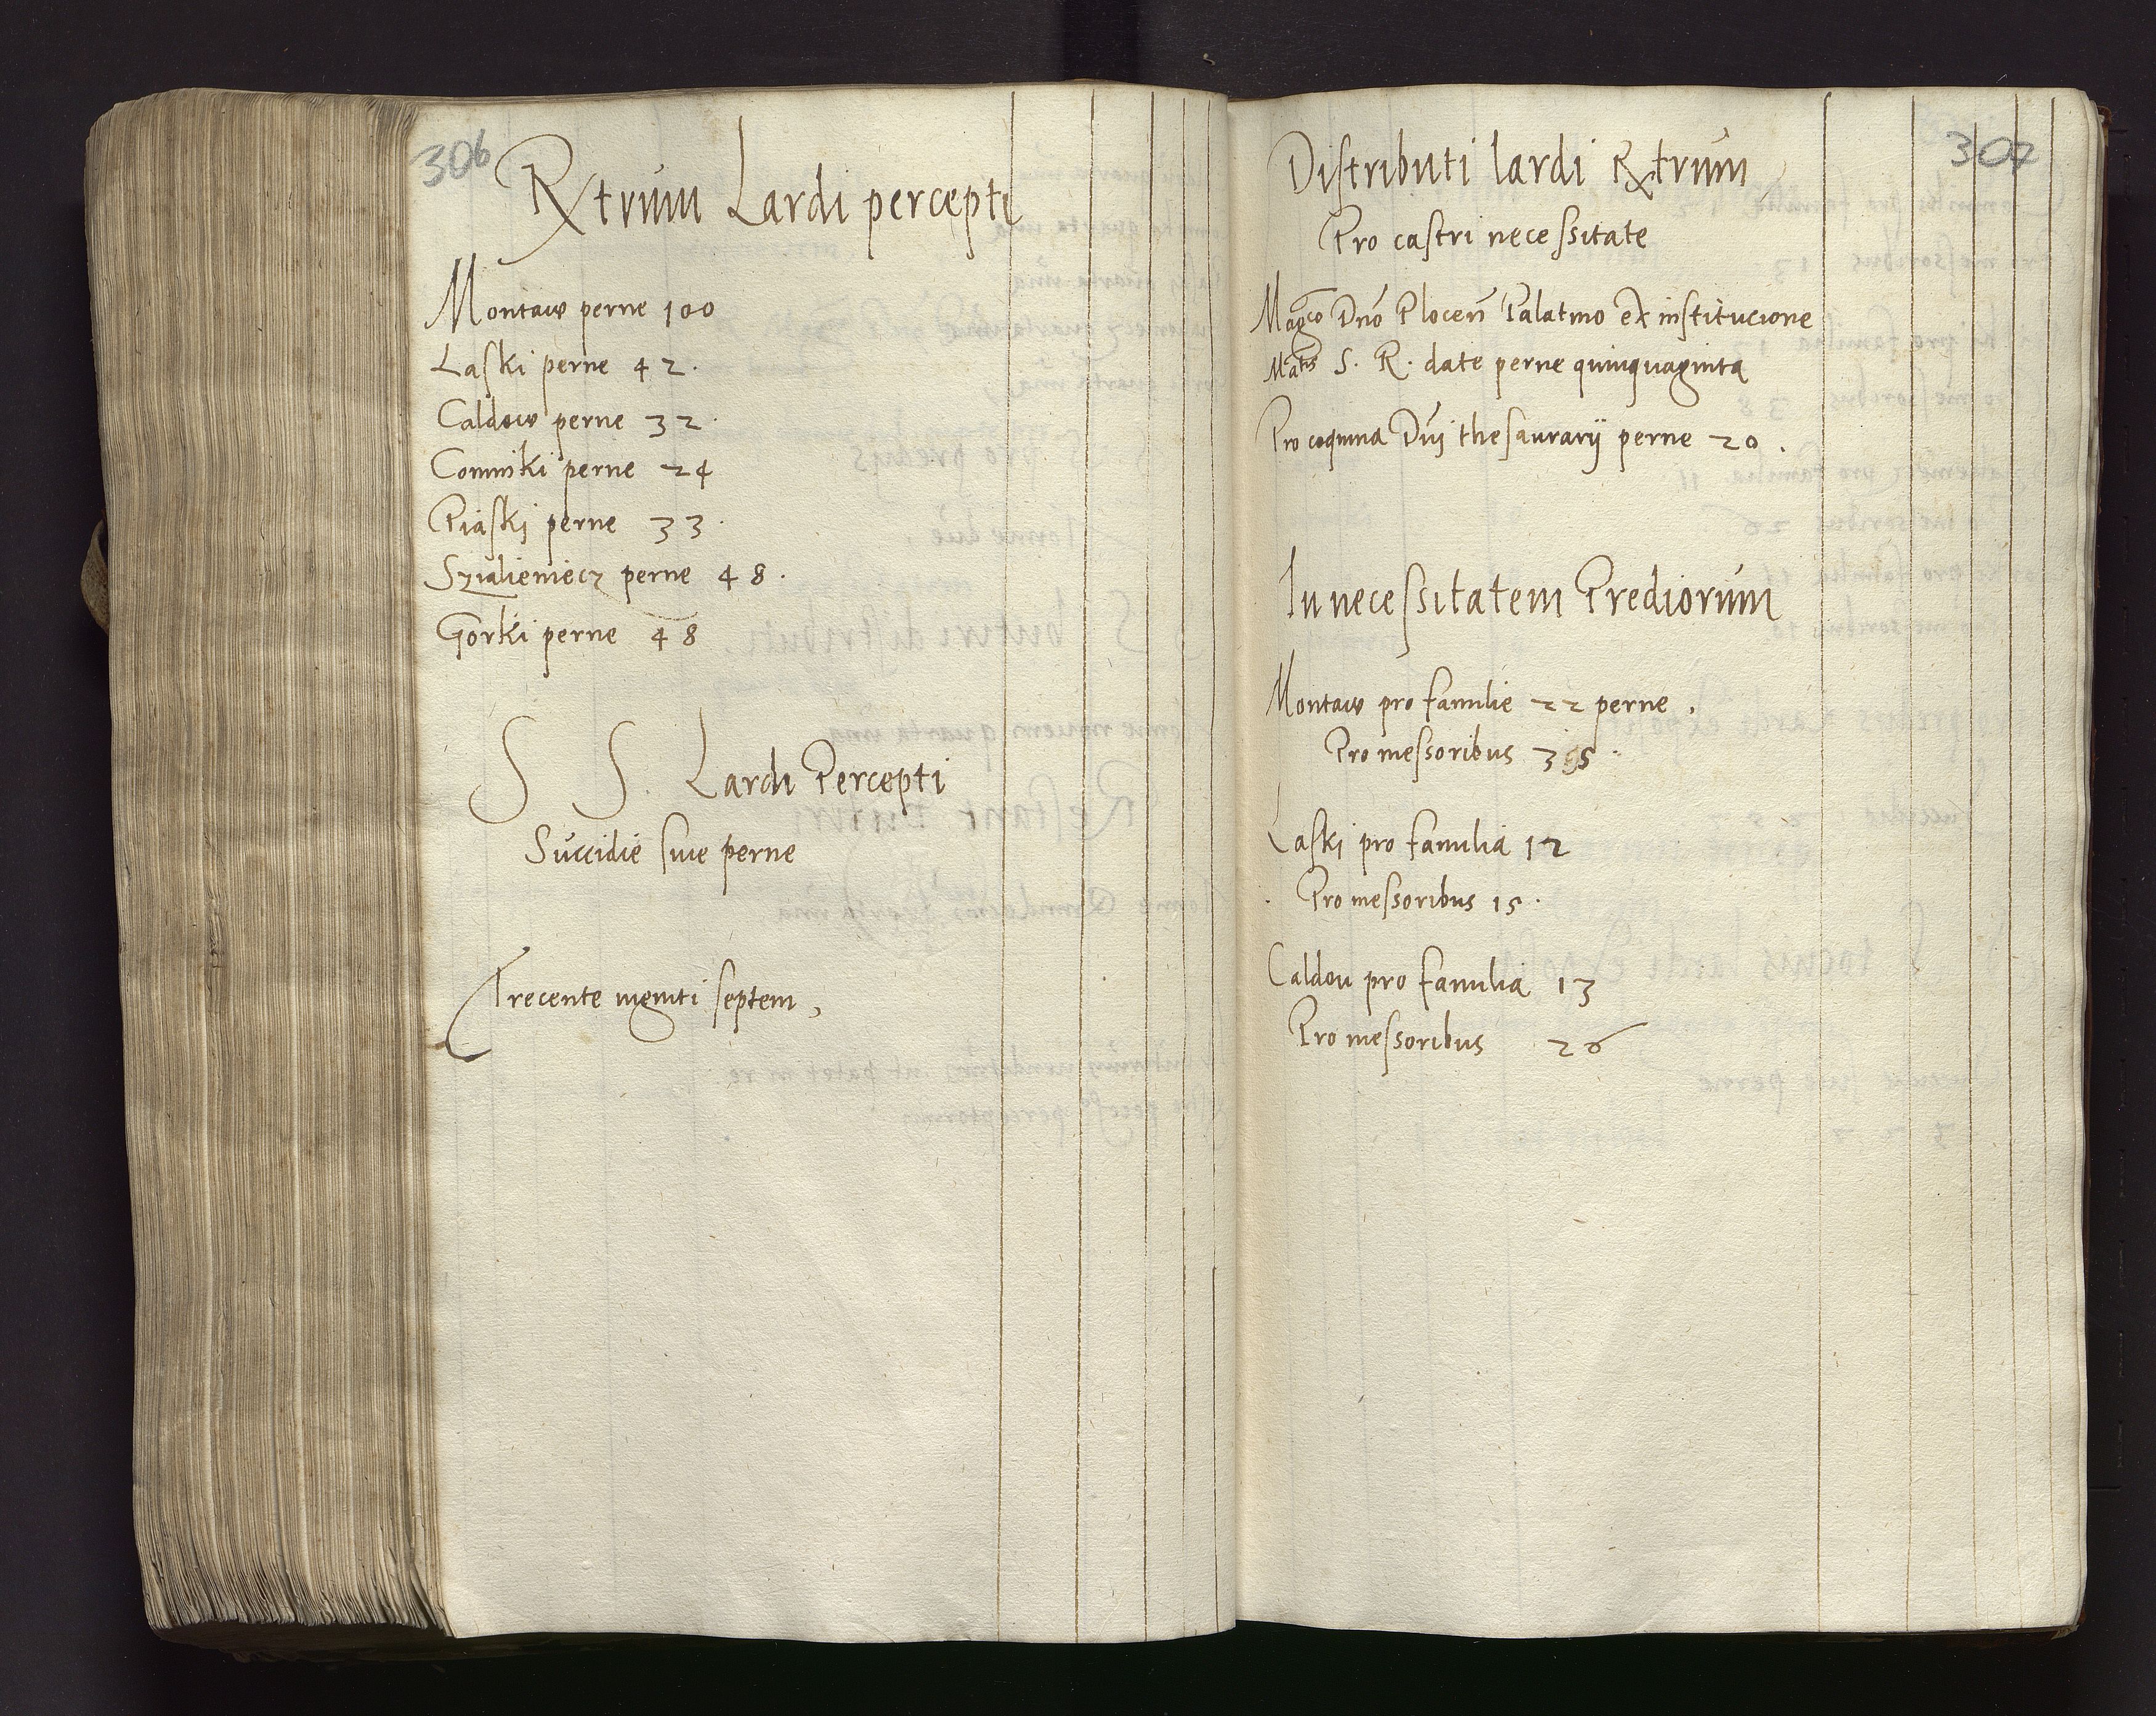 306
Rxtrum Lardi percepti
Montaw perne 100
Laski perne 42.
Caldow perne 32.
Comniki perne 24
Piaski perne 33.
Szialieniecz perne 48.
Gorki perne 48
S S. Lardi Percepti
Succidie siue perne
Trecente viginti septem,
307
Distributi lardi Rxtrum
Pro castri necessitate
Magco Dno Plocen Palatino Ex institucione
Matis S. R. date perne quinquaginta
Pro coquina Dni thesaurarij perne 20.
In necessitatem Prediorum
Montaw pro familie 22 perne,
Pro messoribus 35.
Laski pro familia 12
Pro messoribus 15.
Caldou pro familia 13
Pro messoribus 26